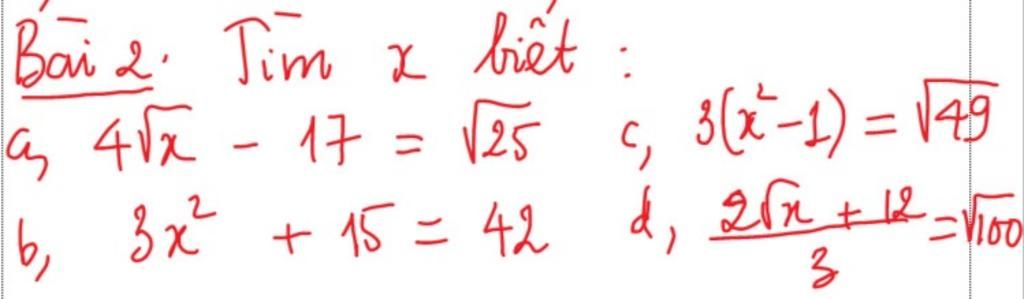 Bài 2. Tìm x biết :
a, 4√x - 17 = √25 c, 3(x²-1) = √49
b, 3x² + 15 = 42 d, (2√x + 12)/3 = √100